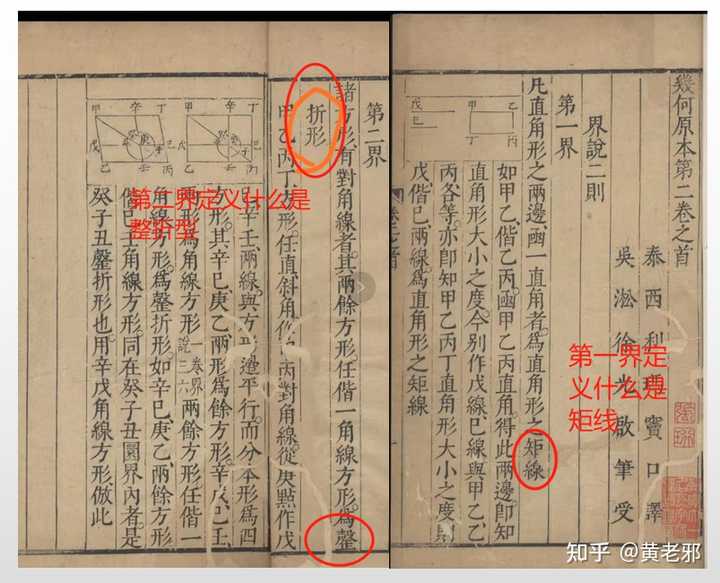 幾何原本第二卷之首
泰西利瑪竇口譯
吳淞徐光啟筆受
界說二則
第一界
凡直角形之兩邊函一直角者為直角形之矩線
如甲乙偕乙丙函甲乙丙直角得此兩邊即知
直角形大小之度今別作戊線己線與甲乙乙
丙各等亦即知甲乙丙丁直角形大小之度則
戊偕己兩線為直角形之矩線
第一界定
义什么是
矩线
第二界
諸方形有對角線者其兩餘方形任偕一角線方形為罄
折形
甲乙丙丁方形任直斜角作丙對角線從庚點作戊
己辛壬兩線與方形邊平行而分本形為四
方形其辛己庚乙兩形為餘方形辛戊己壬
兩形為角線方形一卷界說三六兩餘方形任偕一
角線方形為罄折形如辛己庚乙兩餘方形
偕己壬角線方形同在癸子丑圜界內者是
癸子丑罄折形也用辛戊角線方形倣此
第二界定义什么是
整折型
知乎 @黄老邪